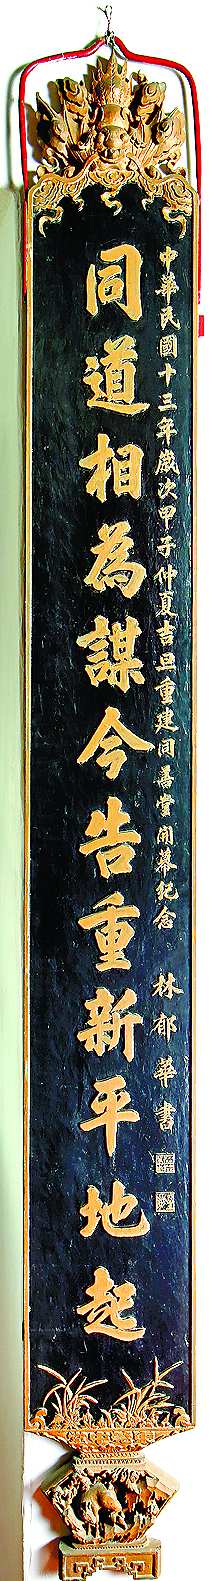 中華民國十三年歲次甲子仲夏吉旦重建同善堂開幕紀念 林郁華書
同道相為謀今告重新平地起